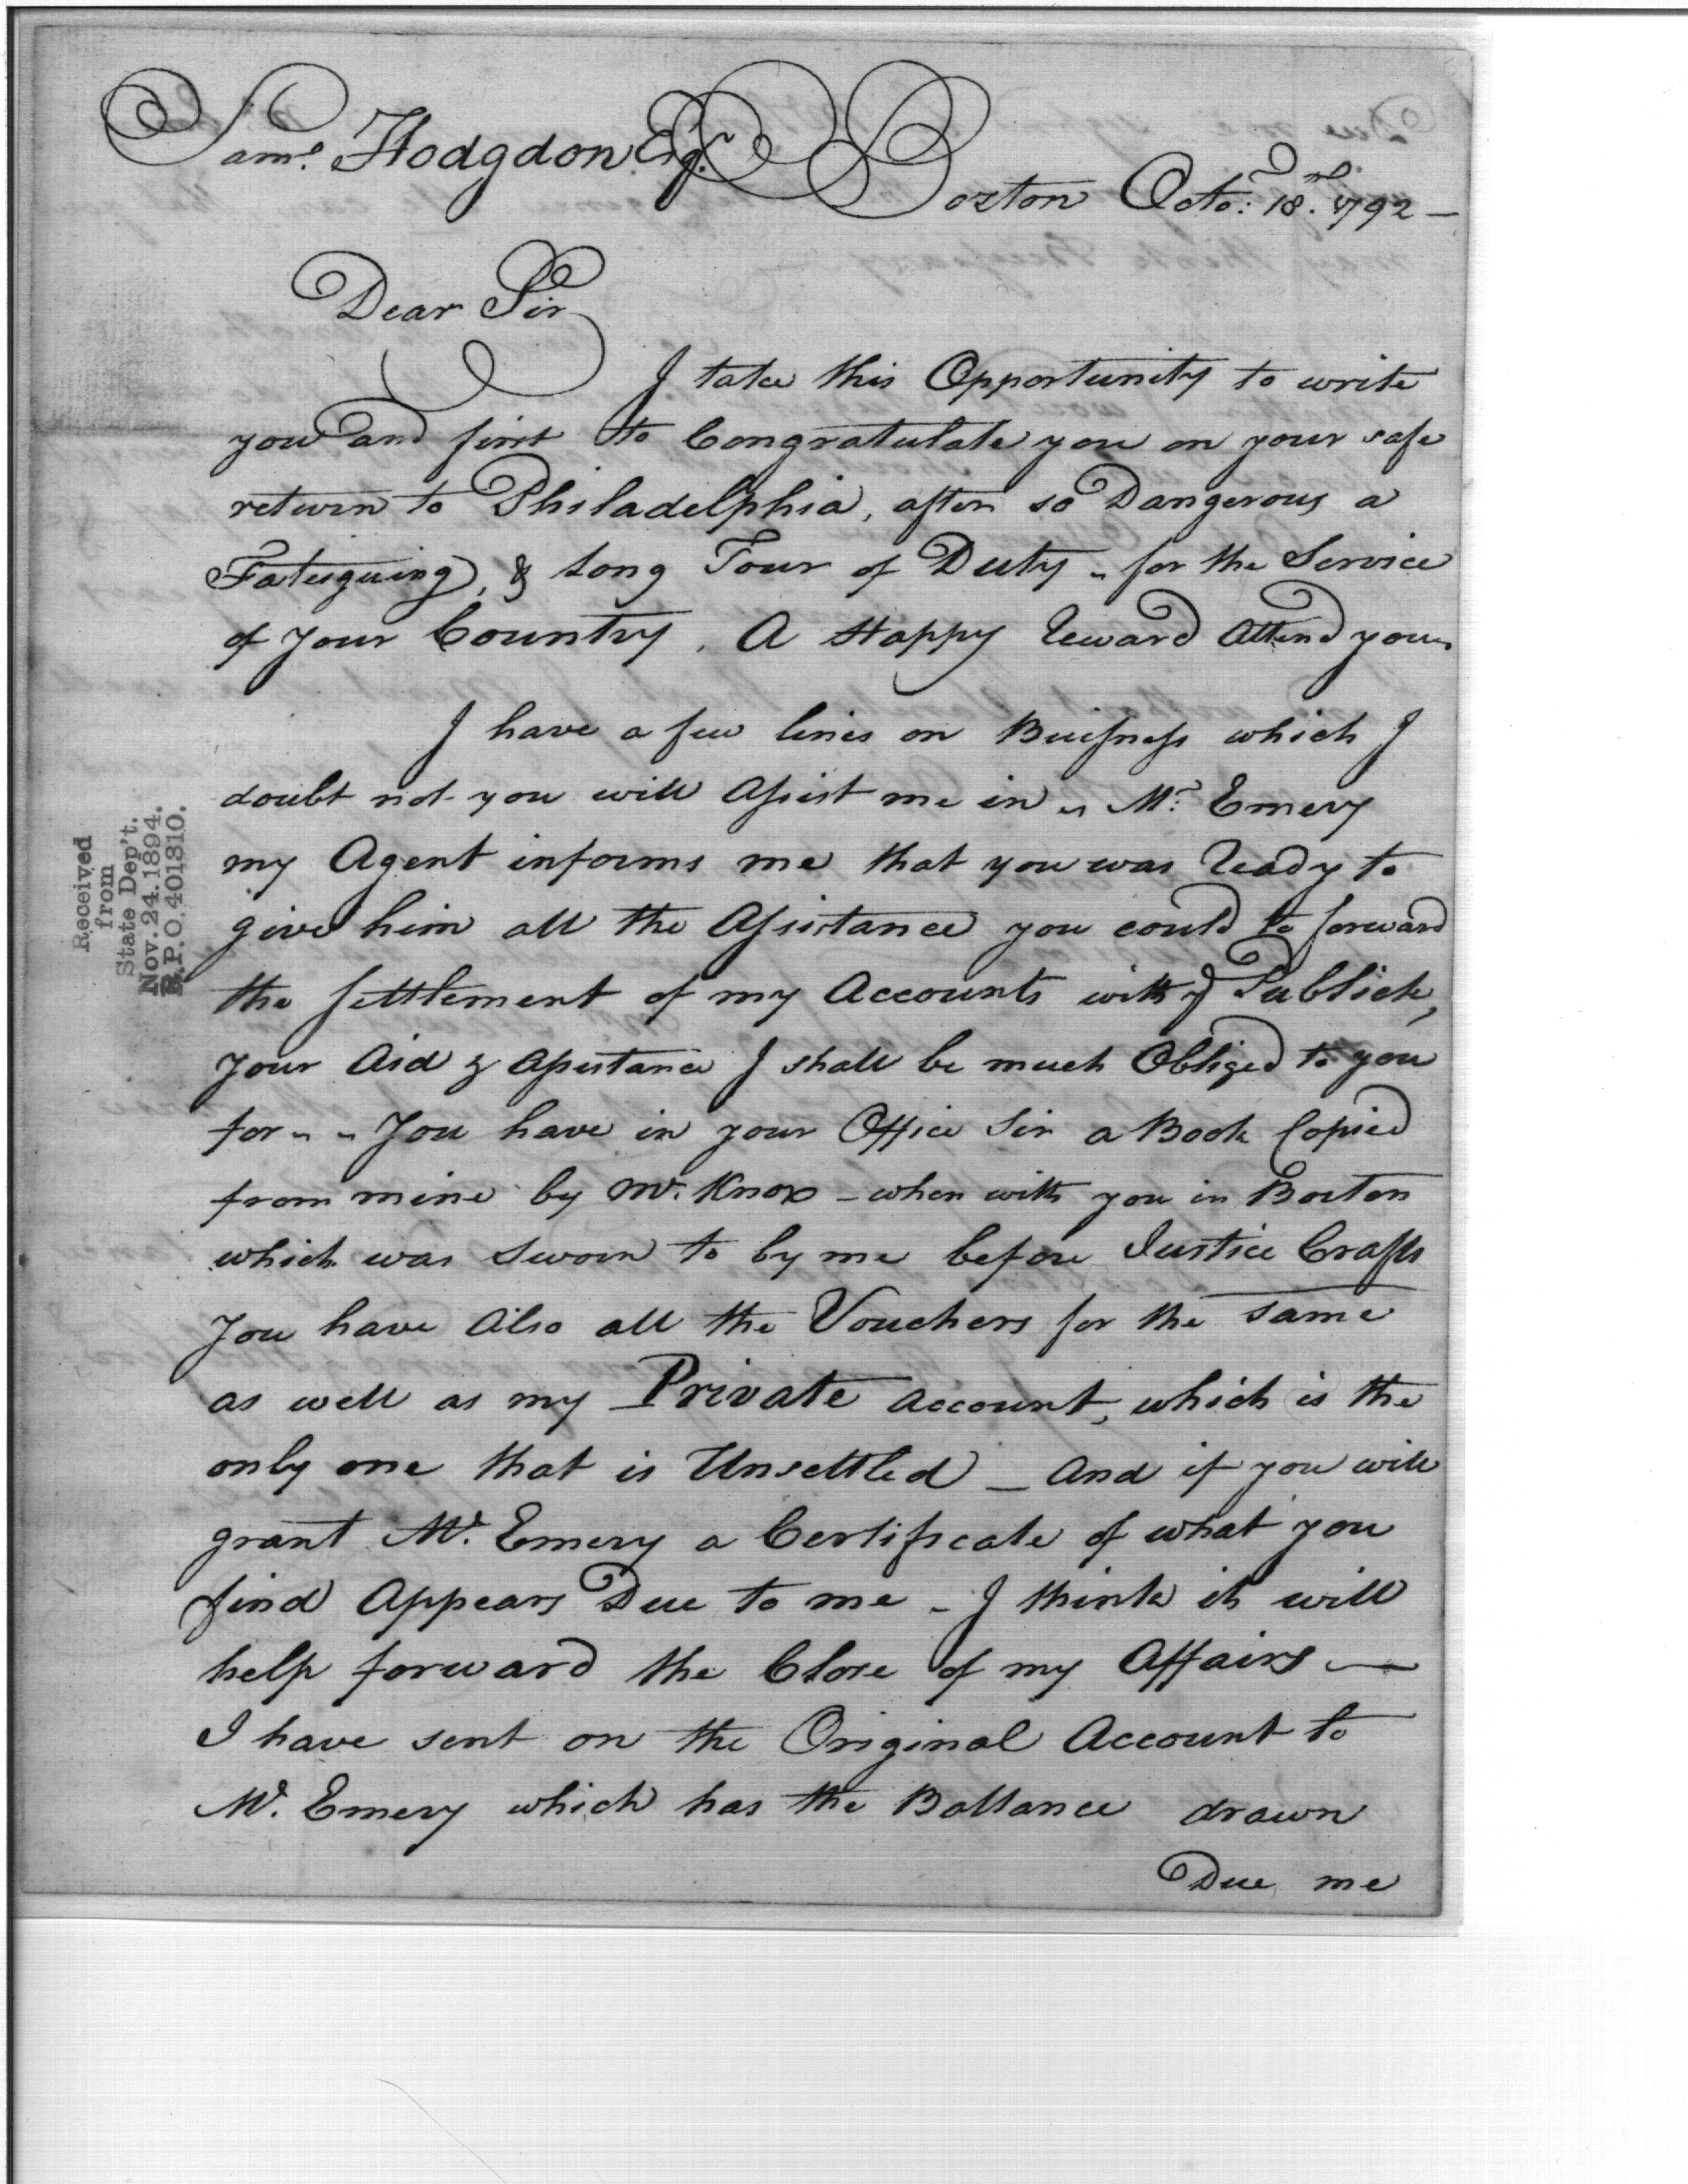 Saml. Hodgdon Esqr.
Boston Octo: 18. 1792 —
Dear Sir
I take this Opportunity to write
you and first to Congratulate you on your safe
return to Philadelphia, after so Dangerous a
Fateguing, & Long Tour of Duty - for the Service
of Your Country, A Happy Reward Attend you
I have a few lines on Buisness which I
doubt not you will Assist me in - Mr. Emery
my Agent informs me that you was Ready to
give him all the Assistance you could to forward
the settlement of my Accounts with ye Publick,
Your Aid & Assistance I shall be much Obliged to you
for - - You have in your Office Sir a Book Copied
from mine by Mr. Knox - when with you in Boston
which was sworn to by me before Justice Crafts
You have Also all the Vouchers for the same
as well as my Private Account, which is the
only one that is Unsettled - And if you will
grant Mr. Emery a Certificate of what you
find Appears Due to me - I think it will
help forward the Close of my Affairs —
I have sent on the Original Account to
Mr. Emery which has the Ballance drawn
Due me
Received
from
State Dep't.
Nov. 24. 1894.
R.P.O. 401,310.